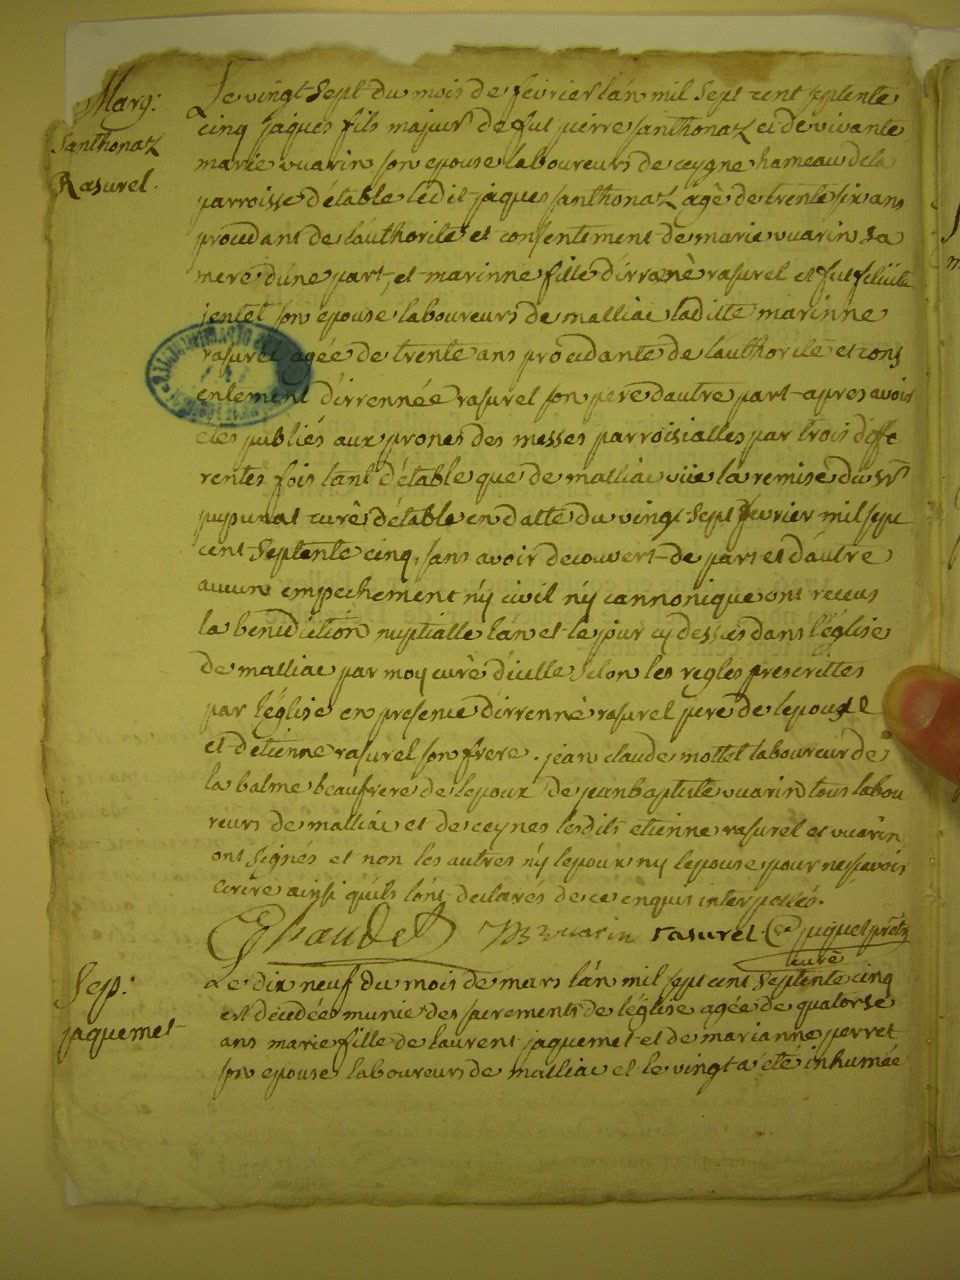 Mary:
Santhonax
Rasurel.
Le vingt sept du mois de fevrier l'án mil sept cent septente
cinq jaques fils majeur de fut pierre santhonax et de vivante
marie vuarin son epouse laboureurs de ceyne hameau de la
parroisse d'étable ledit jaques santhonax agè de trente six ans
procedant de l'authorité et consentement de marie vuarin sa
mere d'une part, et marinne fille d'irrenè rasurel et fut
jentet son epouse laboureurs de malliac laditte marinne
rasurel agée de trente ans procedante de lauthorité et cons
entement d'irrennée rasurel son pere dautre part apres avoir
étés publiés aux prones des messes parroisialles par trois diffe
rentes fois tant d'étable que de malliac vüe la remise du
curè d'étable en datte du vingt sept fevrier mil sept
cent septente cinq, sans avoir decouvert de part et d'autre
aucun empechement n'y civil n'y cannonique ont receus
la benediction nuptialle l'an et le jour cy dessus dans l'église
de malliac par moy curè d'icelle selon les regles prescrittes
par l'église en presence d'irrennè rasurel pere de lepouse
et d'étienne rasurel son frere. jean claude mottet laboureur de
la balme beaufrere de lepoux de jean baptiste vuarin tous labou
reurs de malliac et de ceynes lesdits etienne rasurel et vuarin
ont signés et non les autres n'y lepoux ny lepouse pour ne sçavoir
ecrire ainsi quils l'ont declarés de ce enquis interpellés.
vuarin rasurel.
curè
Sep:
jaquemet
Le dix neuf du mois de mars l'án mil sept cent septente cinq
est décédée munie des sacrements de l'église agée de quatorse
ans marie fille de laurent jaquemet et de marianne perret
son epouse laboureurs de malliac et le vingt a été inhumée